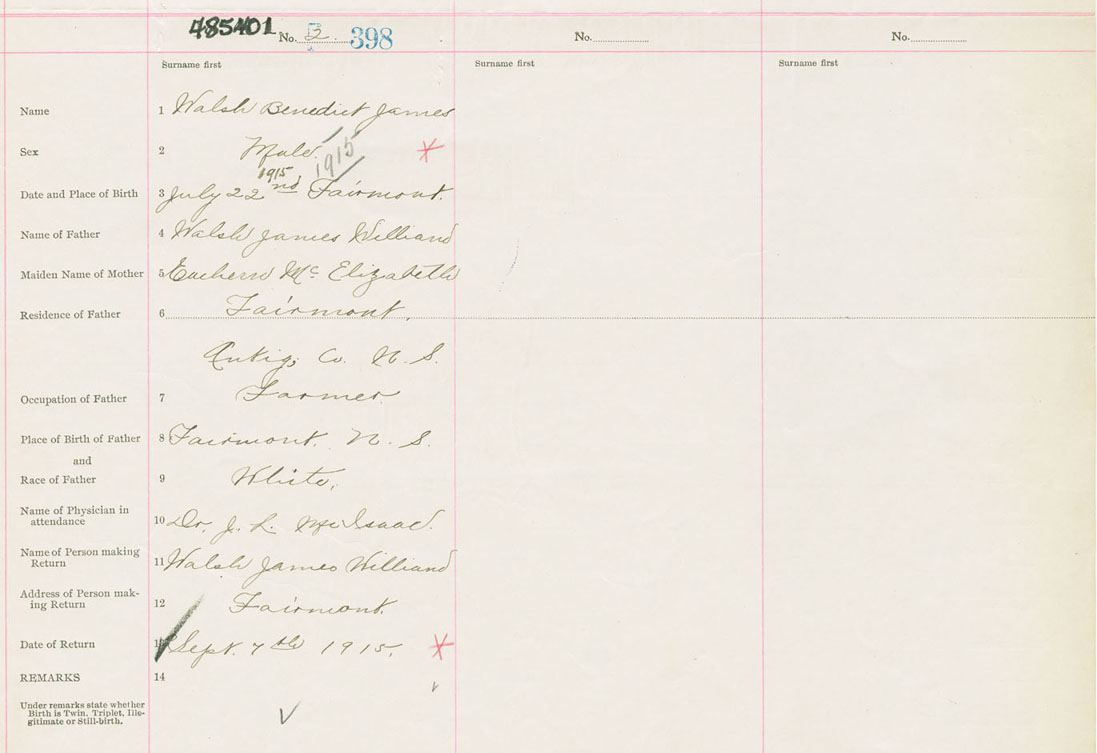 485401
No. 2. 398 No. No.
Surname first Surname first Surname first
Name 1 Walsh Benedict James
Sex 2 Male. 1915
1915
Date and Place of Birth 3 July 22nd Fairmont.
Name of Father 4 Walsh James William
Maiden Name of Mother 5 Eachern Mc Elizabeth
Residence of Father 6 Fairmont.
Antig. Co. N. S.
Occupation of Father 7 Farmer
Place of Birth of Father 8 Fairmont. N. S.
and
Race of Father 9 White.
Name of Physician in
attendance 10 Dr. J. L. McIsaac.
Name of Person making
Return 11 Walsh James William
Address of Person mak-
ing Return 12 Fairmont.
Date of Return 13 Sept. 7th 1915.
REMARKS 14
Under remarks state whether
Birth is Twin, Triplet, Ille-
gitimate or Still-birth.